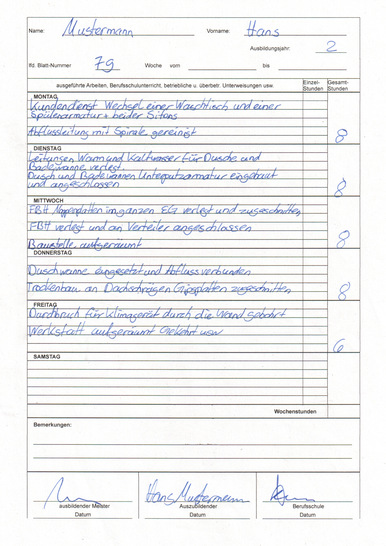 Name: Mustermann Vorname: Hans
Ausbildungsjahr: 2
lfd. Blatt-Nummer 79 Woche vom bis
ausgeführte Arbeiten, Berufsschulunterricht, betriebliche u. überbetr. Unterweisungen usw. Einzel-Stunden Gesamt-Stunden
MONTAG
Kundendienst Wechsel einer Waschtisch und einer
Spülenarmatur + beider Sifons
Abflussleitung mit Spirale gereinigt 8
DIENSTAG
Leitungen Warm und Kaltwasser für Dusche und
Badewanne verlegt.
Dusch und Badewannen Unterputzarmatur eingebaut
und angeschlossen 8
MITTWOCH
FBH Noppenplatten im ganzen EG verlegt und zugeschnitten
FBH verlegt und an Verteiler angeschlossen
Baustelle aufgeräumt 8
DONNERSTAG
Duschwanne eingesetzt und Abfluss verbunden
Trockenbau an Dachschrägen Gipsplatten zugeschnitten 8
FREITAG
Durchbruch für Klimagerät durch die Wand gebohrt
Werkstatt aufgeräumt Gekehrt usw 6
SAMSTAG
Wochenstunden
Bemerkungen:
Hans Mustermann
ausbildender Meister Auszubildender Berufsschule
Datum Datum Datum